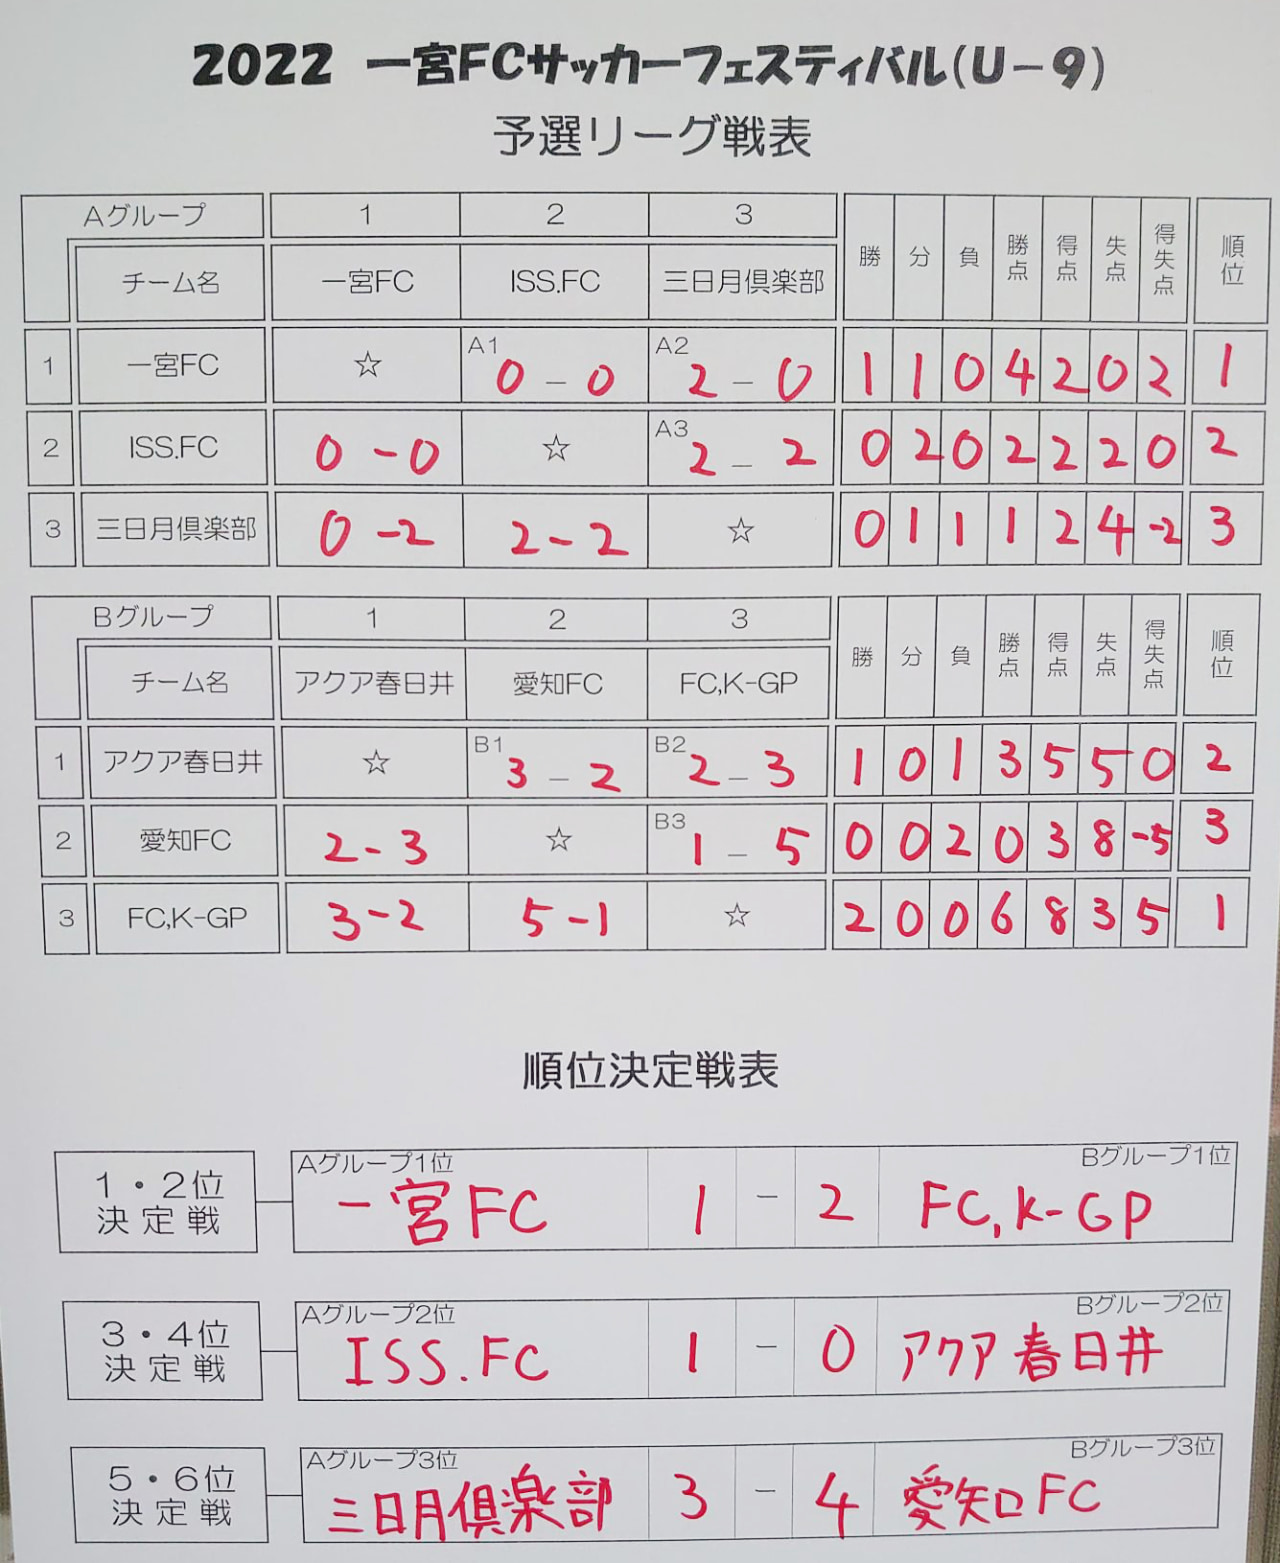 2022 一宮FCサッカーフェスティバル(U-9)
予選リーグ戦表
Aグループ 1 2 3 勝 分 負 勝点 得点 失点 得失点 順位
チーム名 一宮FC ISS.FC 三日月倶楽部
1 一宮FC ☆ A1 0-0 A2 2-0 1 1 0 4 2 0 2 1
2 ISS.FC 0-0 ☆ A3 2-2 0 2 0 2 2 2 0 2
3 三日月倶楽部 0-2 2-2 ☆ 0 1 1 1 2 4 -2 3
Bグループ 1 2 3 勝 分 負 勝点 得点 失点 得失点 順位
チーム名 アクア春日井 愛知FC FC,K-GP
1 アクア春日井 ☆ B1 3-2 B2 2-3 1 0 1 3 5 5 0 2
2 愛知FC 2-3 ☆ B3 1-5 0 0 2 0 3 8 -5 3
3 FC,K-GP 3-2 5-1 ☆ 2 0 0 6 8 3 5 1
順位決定戦表
Aグループ1位 Bグループ1位
1・2位
決定戦
一宮FC 1 - 2 FC,K-GP
Aグループ2位 Bグループ2位
3・4位
決定戦
ISS.FC 1 - 0 アクア春日井
Aグループ3位 Bグループ3位
5・6位
決定戦
三日月倶楽部 3 - 4 愛知FC